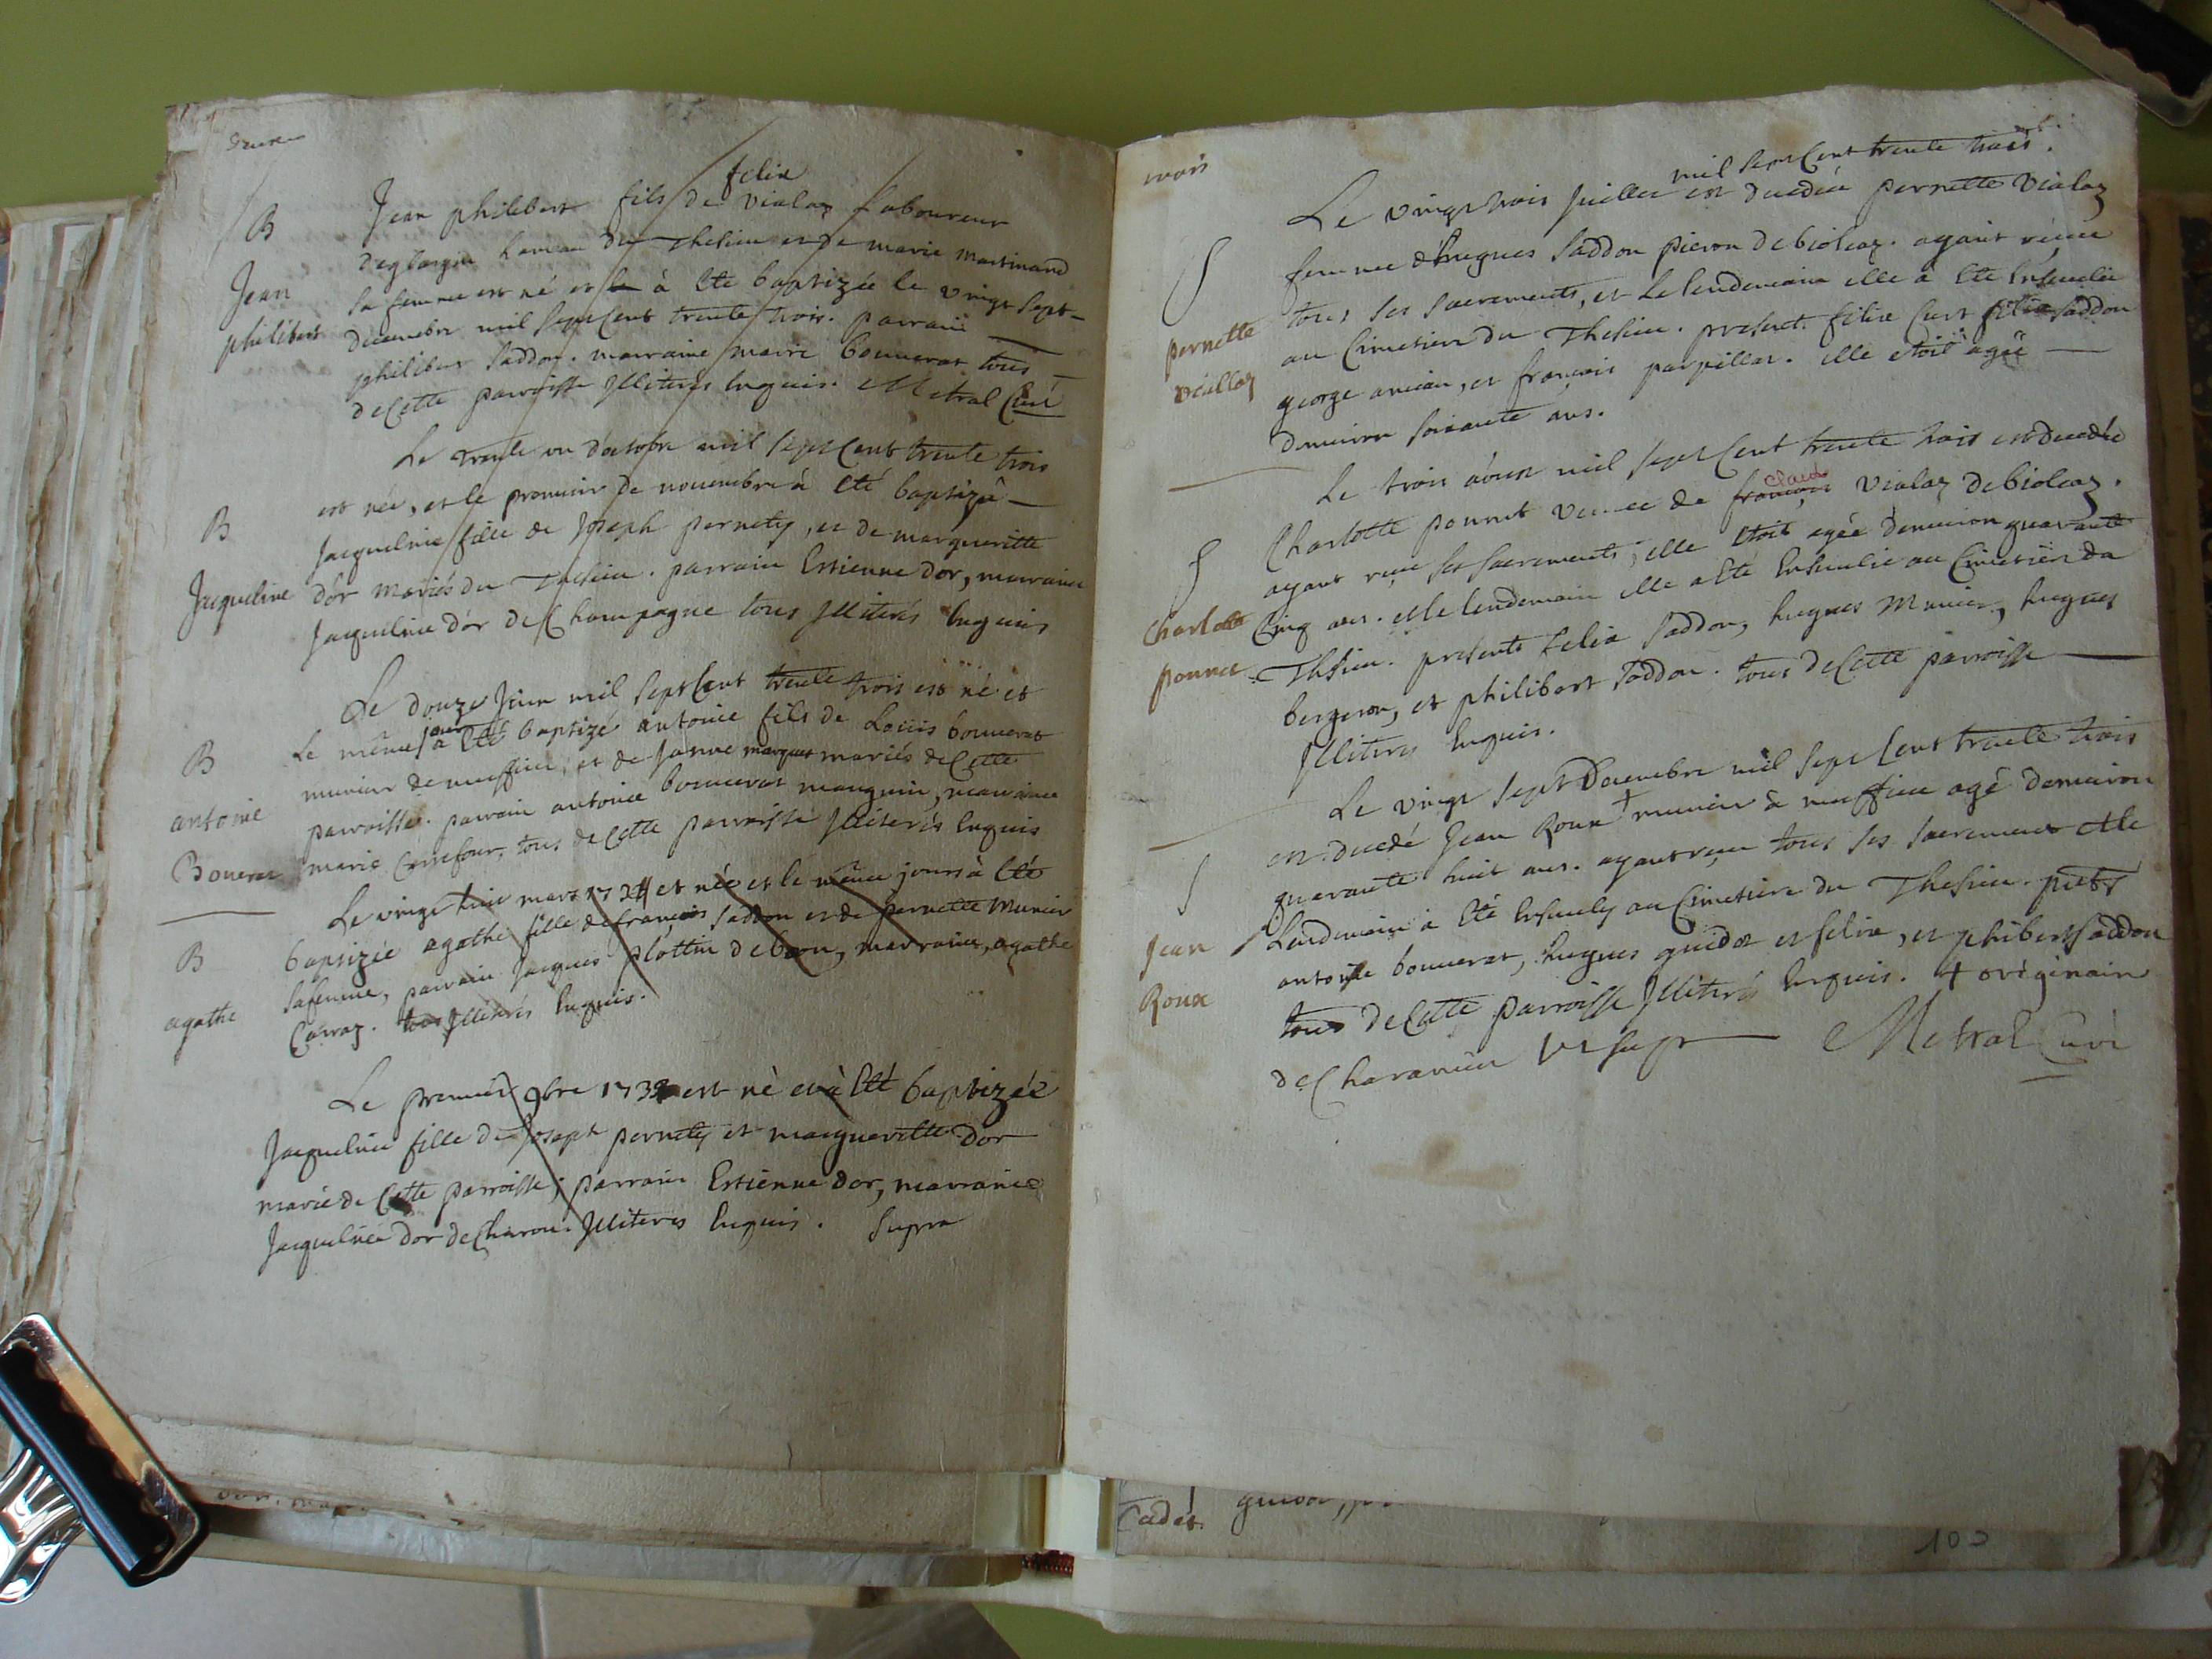 felix
B Jean philibert fils de vialaz laboureur
hameau du Thesieu et de marie martinand
Jean sa femme est né et à été baptizée le vingt sept
philibert decembre mil sept cent trente trois. parrain
philibert saddon. marraine marie bouuerat tous
de cette parroisse Illiterés Enquis. Metral Curé
Le trente un d'octobre mil sept cent trente trois
est née, et le premier de nouembre à été baptizé
B Jacqueline fille de Joseph pernety, et de margueritte
Jacqueline d'or mariés du Thesieu. parrain Estienne d'or, marraine
Jacqueline d'or de Champagne tous Illiterés Enquis
Le douze Juin mil sept Cent trente trois est né et
jour
B Le même à été baptizé antoine fils de Louis bouuerat
munier de muffieu, et de Janne marquet mariés de Cette
antoine parroisse. parrain antoine bouuerat mangnin, marraine
Bouerat marie Carrefour, tous de Cette parroisse Illiterés Enquis
Le vingt huit mars 1734 et née et le même jours à été
B baptizée agathe fille de françois saddon et de pernette Munier
sa femme, parrain Jacques plottin de beon, marraine, agathe
agathe Carraz. tous Illiterés Enquis.
Le premier 9bre 1733 est né et à été baptizée
Jacqueline fille de Joseph pernety et marguerette Dor
marié de Cette parroisse, parrain Estienne dor, marraine
Jacqueline dor de Charon. Illiteres Enquis. Supra
trois
mil sept Cent trente trois.
Le vingt trois Juillet est decedée pernette vialaz
S femme d'hugues saddon pieron de bioleaz. ayant reçue
tous ses sacrements, et Le lendemain elle à été Enseuelie
pernette au Cimetier du Thesieu. present. felix Curt felix saddon
viallaz george ancian, et françois parpillat. elle etoit agée
denuiron soixante ans.
Le trois aoust mil sept Cent trente trois est decedée
claud
S Charlotte ponnet veuue de françois vialaz de bioleaz.
ayant reçue ses sacrements, elle etoit agée denuiron quarante
Charlotte Cinq ans. et le lendemain elle a été Enseuelie au Cimetier du
ponnet Thesieu. presents felix saddon, hugues Munier, hugues
bergeron, et philibert saddon. tous de Cette parroisse
Illiteres Enquis.
Le vingt sept Decembre mil sept Cent trente trois
S est decedé Jean Roux + munier à muffieu agé denuiron
quarante huit ans. ayant reçu tous ses sacrements et le
Jean Lendemain à été Enseuely au Cimetiere du Thesieu. prets
Roux antoine bouuerat, hugues guidot et felix, et phibert saddon
tous de Cette parroisse Illiterés Enquis. + originair
de Charancin ut supr Metral Curé
Cadet
103